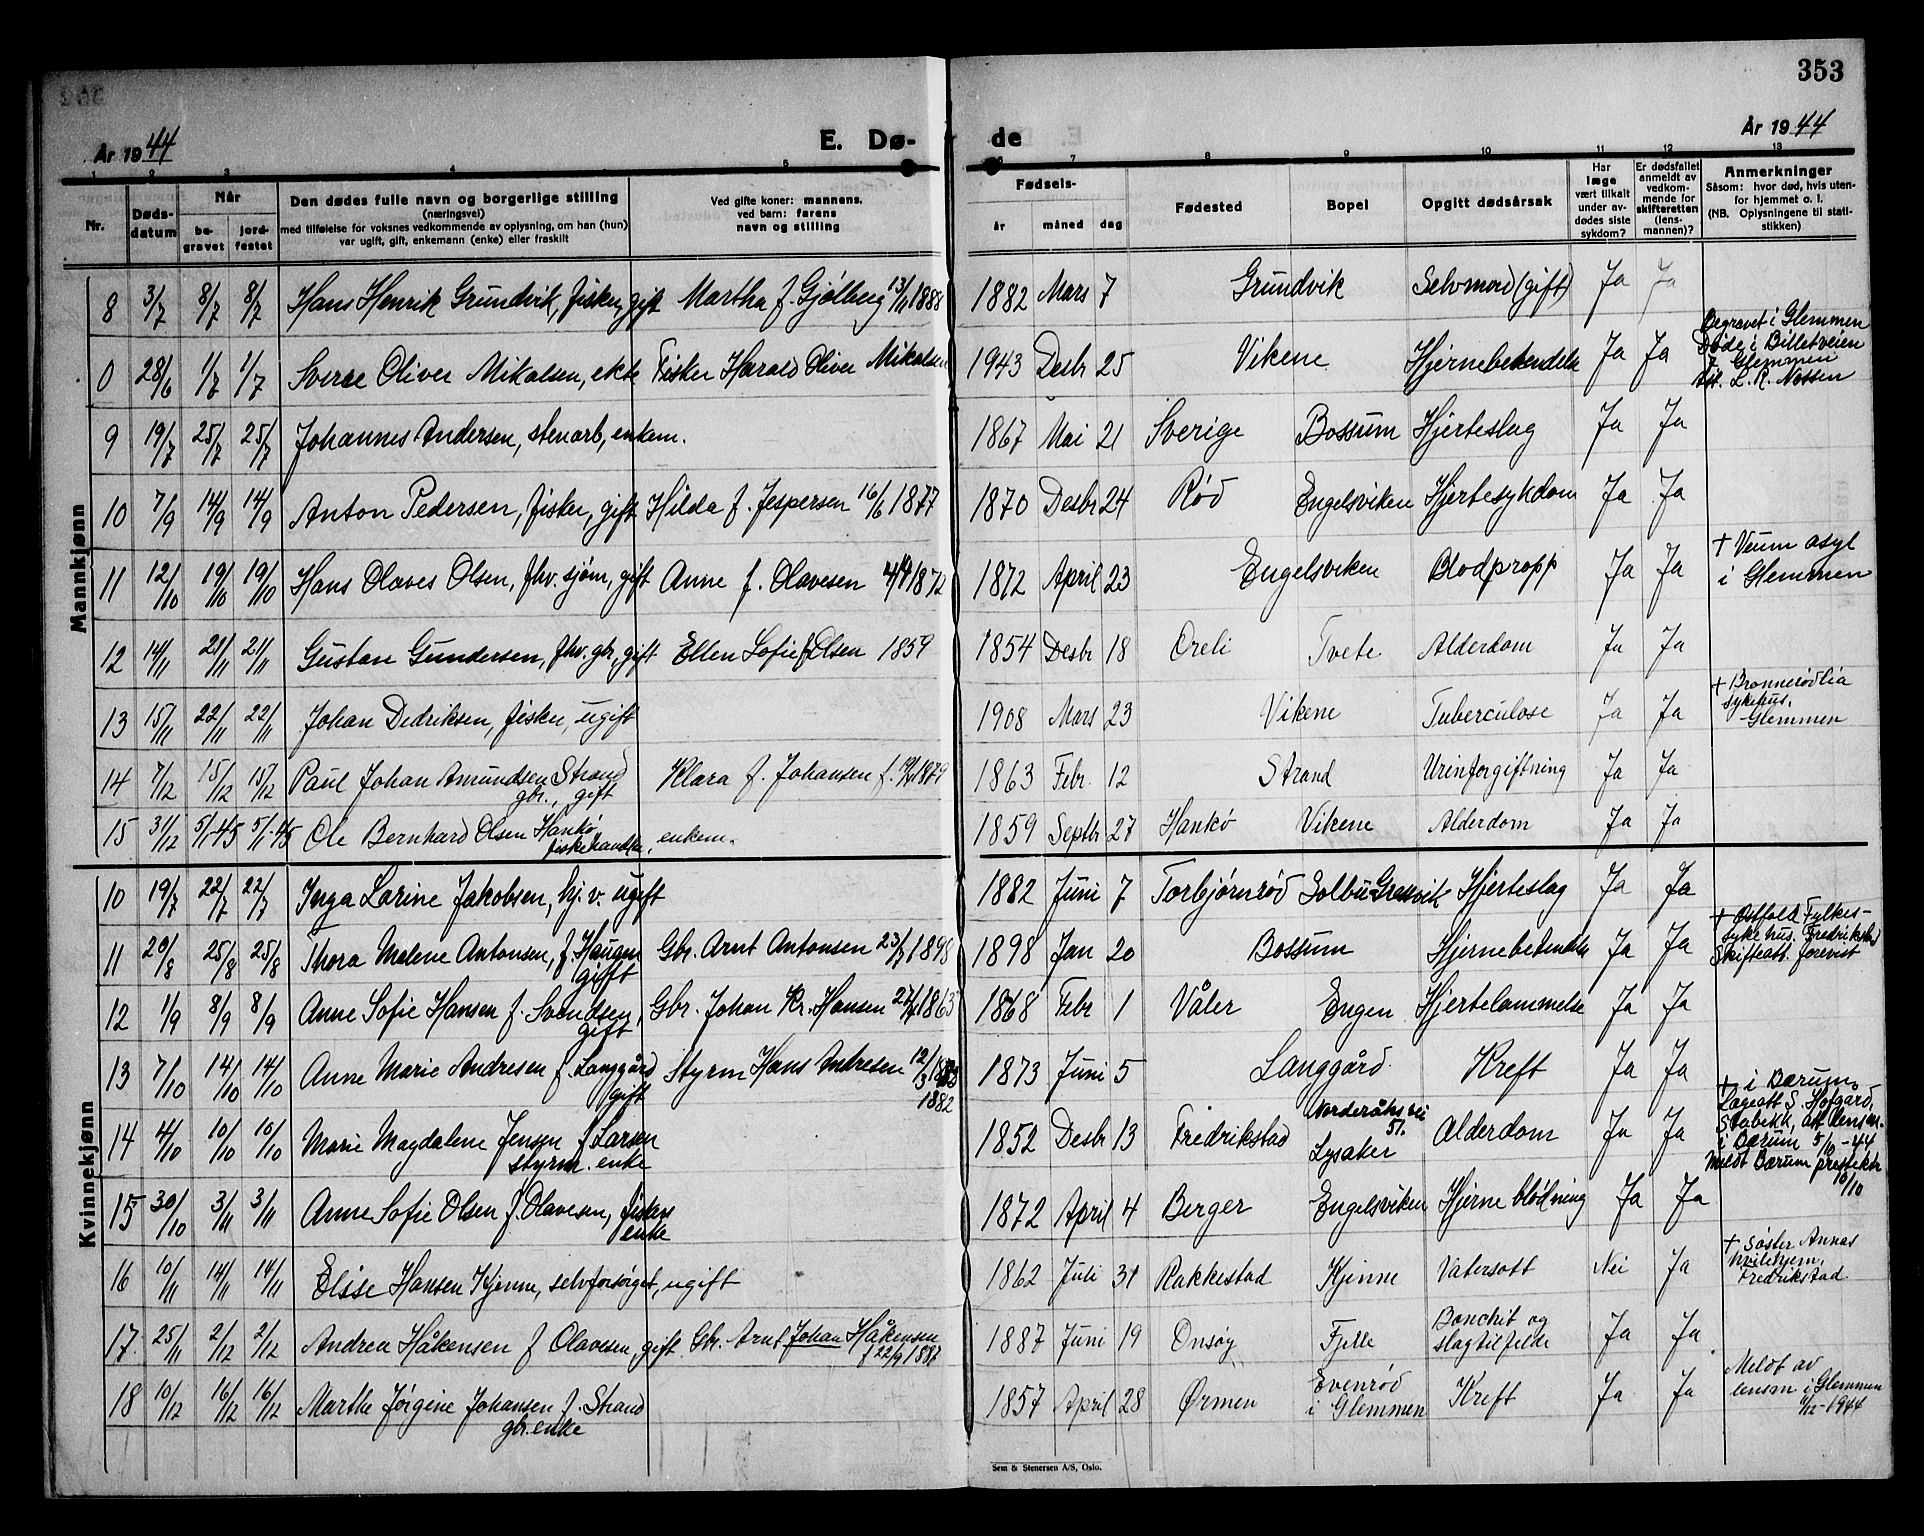 353
År 1944
E. Dø- de
År 1944
1 2 3 4 5 6 7 8 9 10 11 12 13
Nr.
Døds-
datum
Når
be-
gravet
jord-
festet
Den dødes fulle navn og borgerlige stilling
(næringsvei)
med tilføielse for voksnes vedkommende av oplysning, om han (hun)
var ugift, gift, enkemann (enke) eller fraskilt
Ved gifte koner: mannens.
ved barn: farens
navn og stilling
Fødsels-
år måned dag
Fødested
Bopel
Opgitt dødsårsak
Har
læge
vært tilkalt
under av-
dødes siste
sykdom?
Er dødsfallet
anmeldt av
vedkom-
mende for
skifteretten
(lens-
mannen)?
Anmerkninger
Såsom: hvor død, hvis uten-
for hjemmet o. l.
(NB. Oplysningene til stati-
stikken)
Mannkjønn
8 3/7 8/7 8/7 Hans Henrik Grundvik, fisker, gift Martha f. Gjølberg 13/11 1888 1882 Mars 7 Grundvik Selvmord (gift) Ja Ja
0 28/6 1/7 1/7 Sverre Oliver Mikalsen, ekte Fisker Harald Oliver Mikalsen 1943 Desbr 25 Vikene Hjernebetendelse Ja Ja
Begravet i Glemmen
Døde i Billetveien
i Glemmen
L. R. Nossen
9 19/7 25/7 25/7 Johannes Andersen, stenarb, enkem. 1867 Mai 21 Sverige Bossum Hjerteslag Ja Ja
10 7/9 14/9 14/9 Anton Pedersen, fisker, gift Hilda f. Jespersen 16/6 1877 1870 Desbr 24 Rød Engelsviken Hjertesykdom Ja Ja
11 12/10 19/10 19/10 Hans Olaves Olsen, fhv. sjøm, gift Anne f. Olavesen 4/4 1872 1872 April 23 Engelsviken Blodpropp Ja Ja
+ Veum asyl
i Glemmen
12 14/11 21/11 21/11 Gustav Gundersen, fhv. gbr, gift Ellen Sofie f Olsen 1859 1854 Desbr 18 Oreli Tvete Alderdom Ja Ja
13 15/11 22/11 22/11 Johan Didriksen, fisker, ugift 1908 Mars 23 Vikene Tuberculose Ja Ja
+ Brønnerødlia
sykehus,
Glemmen
14 7/12 15/12 15/12 Paul Johan Amundsen Strand
gbr., gift
Klara f. Johansen f. 1879 1863 Febr. 12 Strand Urinforgiftning Ja Ja
15 31/12 5/1-45 5/1-45 Ole Bernhard Olsen Hankø
fiskehandler, enkem. 1859 Septbr 27 Hankø Vikene Alderdom Ja Ja
Kvinnekjønn
10 19/7 22/7 22/7 Inga Larine Jakobsen, hj. v. ugift 1882 Juni 7 Torbjørnrød Solbu Gressvik Hjerteslag Ja Ja
11 20/8 25/8 25/8 Thora Malene Antonsen, f. Haugen
gift
Gbr. Arnt Antonsen 23/7 1898 1898 Jan 20 Bossum Hjernebetendelse Ja Ja
+ Østfold Fylkes-
sykehus. Fredrikstad
Skifteatt. forevist
12 1/9 8/9 8/9 Anne Sofie Hansen f. Svendsen,
gift
Gbr. Johan Kr. Hansen 1863 1868 Febr 1 Våler Engen Hjertelammelse Ja Ja
13 7/10 14/10 14/10 Anne Marie Andresen f. Langgård
gift
Styrm Hans Andresen 12/3
1882
1873 Juni 5 Langgård. Kreft Ja Ja
14 4/10 10/10 10/10 Marie Magdalene Jensen f. Larsen
styrm. enke
1852 Desbr 13 Fredrikstad
51.
Lysaker Alderdom Ja Ja
+ i Bærum,
Lægeatt S. Hofgård,
Stabekk, att lensm.
i Bærum 5/10-44
Meldt Bærum prestektr
10/10
15 30/10 3/11 3/11 Anne Sofie Olsen f. Olavesen, fiskers
enke
1872 April 4 Berger Engelsviken Hjerneblødning Ja Ja
16 10/11 14/11 14/11 Elise Hansen Kjenne, selvforsørget, ugift 1862 Juli 31 Rakkestad Kjenne Vatersott Nei Ja
+ Søster Annas
hvilehjem,
Fredrikstad.
17. 25/11 2/12 2/12 Andrea Håkensen f Olavesen, gift Gbr. Arnt Johan Håkensen
f 22/9 1887
1887 Juni 19 Onsøy Fjelle
Bonchit og
slagtilfelde Ja Ja
18 10/12 16/12 16/12 Marthe Jørgine Johansen f. Strand
gbr. enke
1857 April 28 Ørmen
Evenrød
i Glemmen Kreft Ja Ja
Meldt av
lensm i Glemmen
1944
Sem & Stenersen A/S, Oslo.